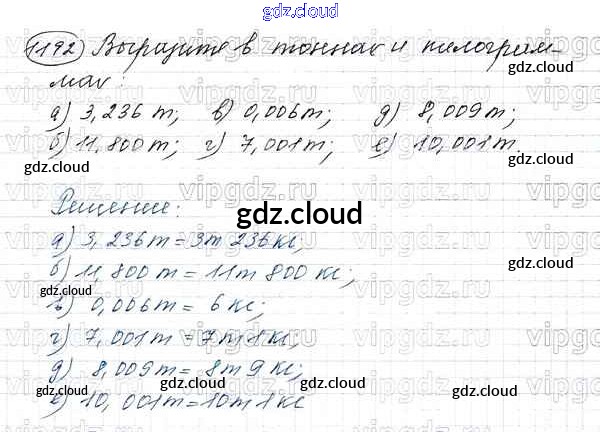 gdz.cloud
1192) Выразите в тоннах и килограм-
мах:
а) 3,236 т; в) 0,006 т; д) 8,009 т;
б) 11,800 т; г) 7,001 т; е) 10,001 т.
gdz.cloud gdz.cloud
Решение:
gdz.cloud
а) 3,236 т = 3 т 236 кг;
б) 11,800 т = 11 т 800 кг;
gdz.cloud gdz.cloud
в) 0,006 т = 6 кг;
г) 7,001 т = 7 т 1 кг;
gdz.cloud
д) 8,009 т = 8 т 9 кг;
gdz.cloud gdz.cloud
е) 10,001 т = 10 т 1 кг
gdz.cloud
vipgdz.ru